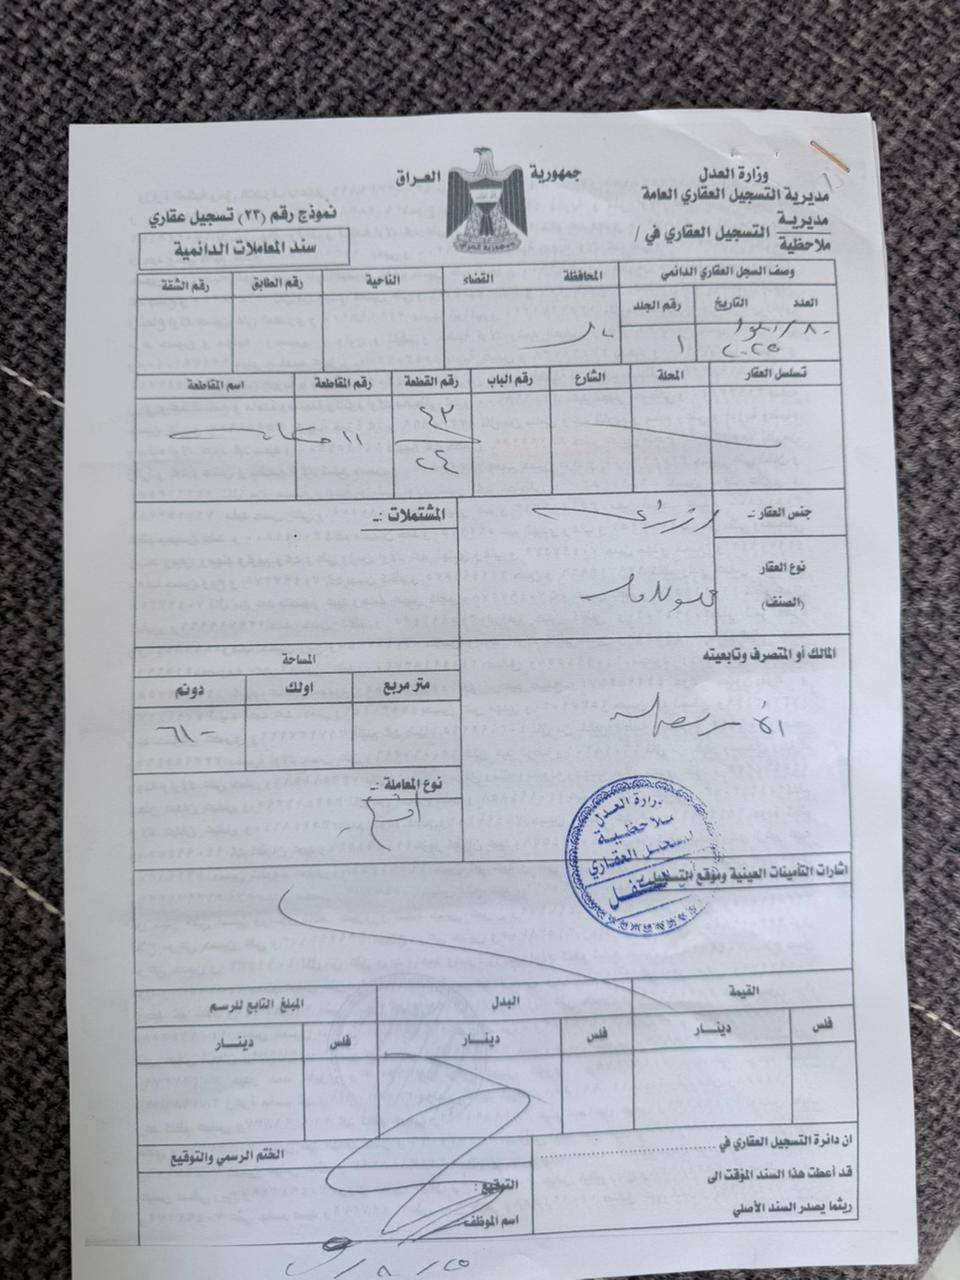 جمهورية العراق
وزارة العدل
مديرية التسجيل العقاري العامة
مديرية
ملاحظية
التسجيل العقاري في /
نموذج رقم (٢٣) تسجيل عقاري
سند المعاملات الدائمية
وصف السجل العقاري الدائمي
المحافظة
القضاء
الناحية
رقم الطابق
رقم الشقة
العدد
التاريخ
رقم الجلد
٢٠٢٥
١
تسلسل العقار
المحلة
الشارع
رقم الباب
رقم القطعة
رقم المقاطعة
اسم المقاطعة
٤٣
٢٤
١١
جنس العقار :ـ
المشتملات :ـ
نوع العقار
(الصنف)
المالك أو المتصرف وتابعيته
المساحة
متر مربع
اولك
دونم
٦١٠
نوع المعاملة :ـ
وزارة العدل
ملاحظية
التسجيل العقاري
اشارات التأمينات العينية وموقع التسجيل :ـ
القيمة
البدل
المبلغ التابع للرسم
فلس
دينــار
فلس
دينــار
فلس
دينــار
ان دائرة التسجيل العقاري في
قد أعطت هذا السند المؤقت الى
ريثما يصدر السند الأصلي
الختم الرسمي والتوقيع
التوقيع :
اسم الموظف